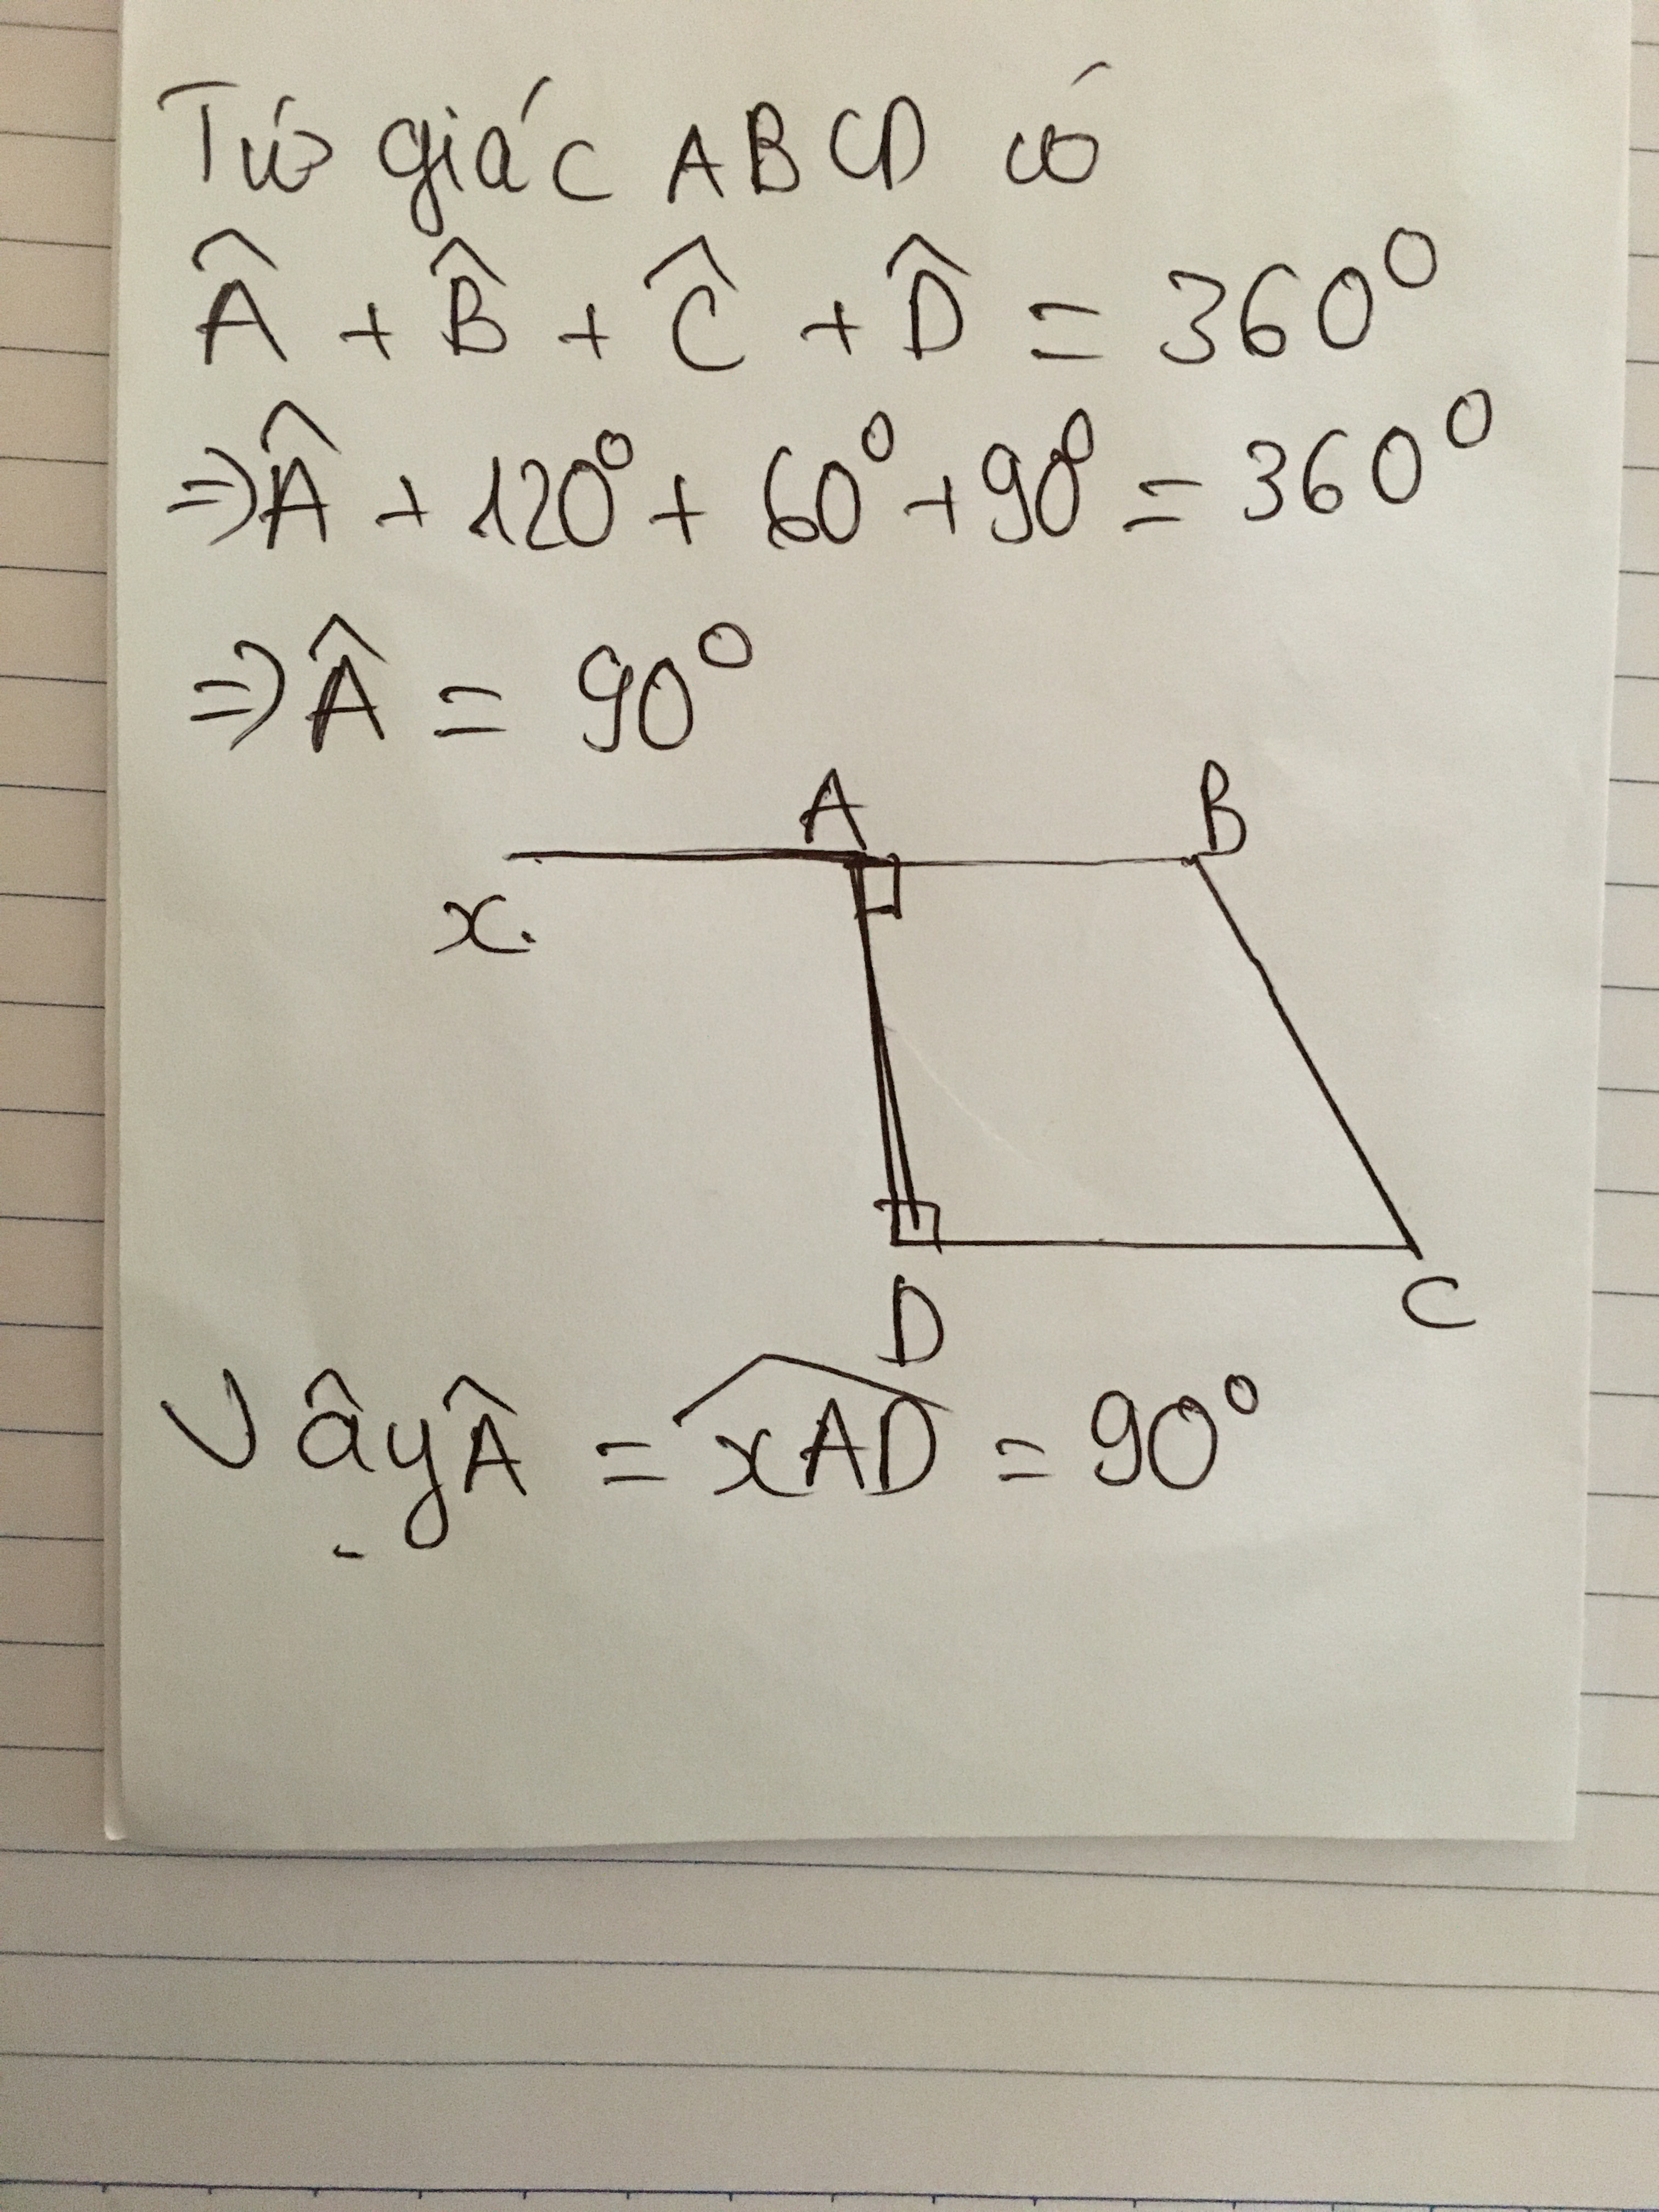 Tứ giác ABCD có
Â + B̂ + Ĉ + D̂ = 360⁰
⇒ Â + 120⁰ + 60⁰ + 90⁰ = 360⁰
⇒ Â = 90⁰
A B
x
D C
Vậy Â = x͡AD = 90⁰